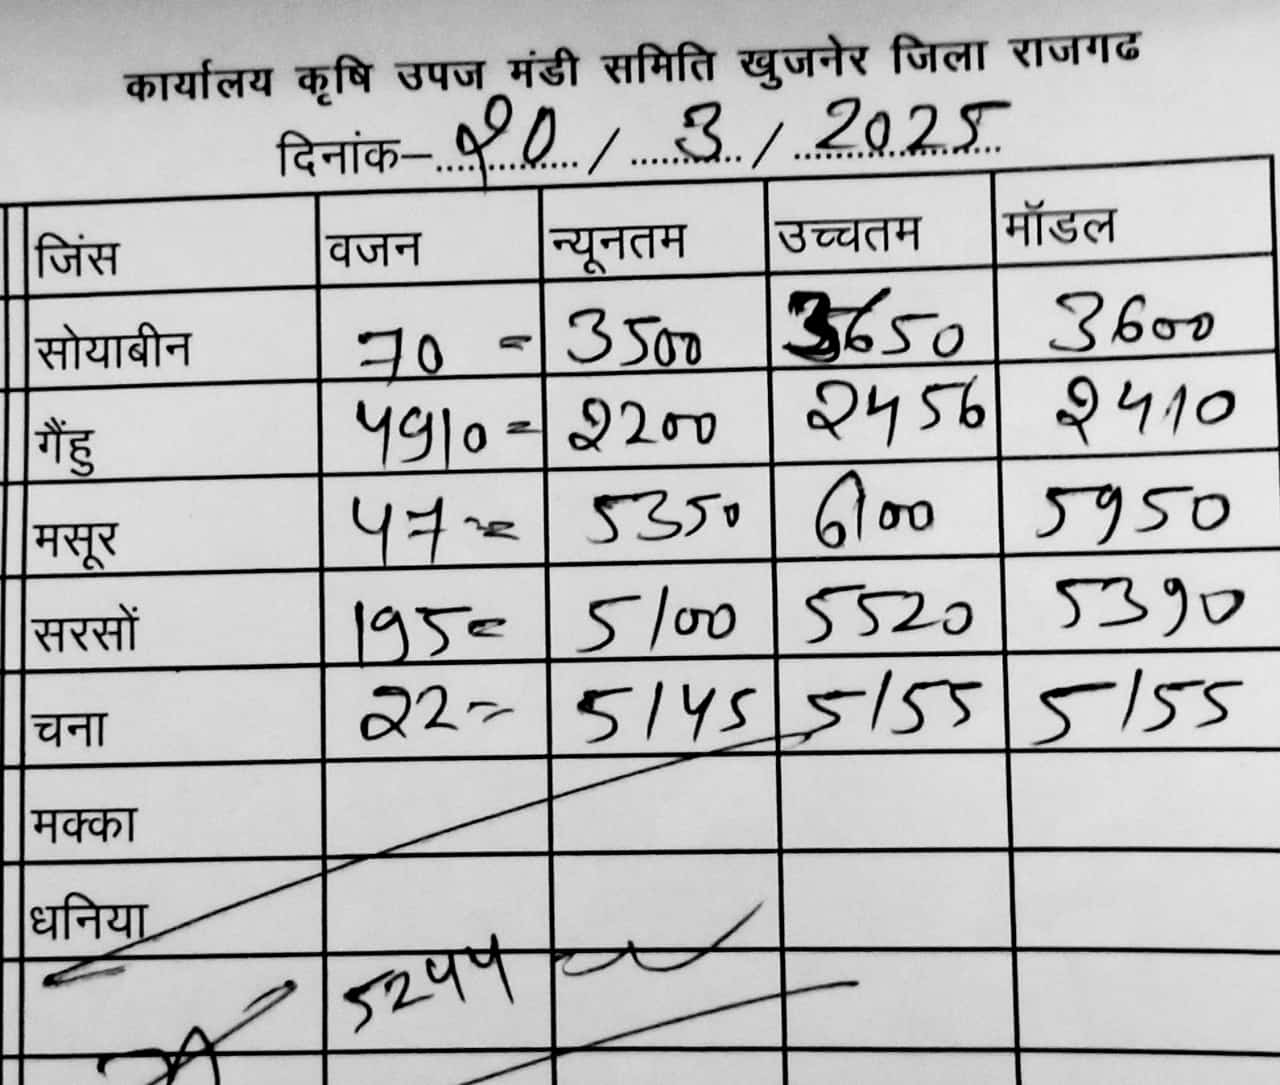 कार्यालय कृषि उपज मंडी समिति खुजनेर जिला राजगढ
दिनांक– 20 / 3 / 2025
जिंस वजन न्यूनतम उच्चतम मॉडल
सोयाबीन 70 = 3500 3650 3600
गैंहु 4910 = 2200 2456 2410
मसूर 47 = 5350 6100 5950
सरसों 195 = 5100 5520 5390
चना 22 = 5145 5155 5155
मक्का
धनिया
5244